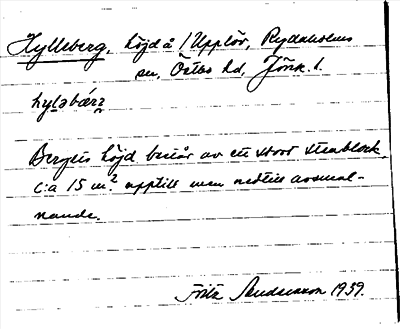 Hylleberg, höjd å 1 Upplöv, Rydaholms
sn, Östbo hd, Jönk. l.
hyləbárʒ
Bergets höjd består av ett stort stenblock,
c:a 15 m.² upptill men nedtill avsmal-
nande.
Fritz Sandersson 1939.